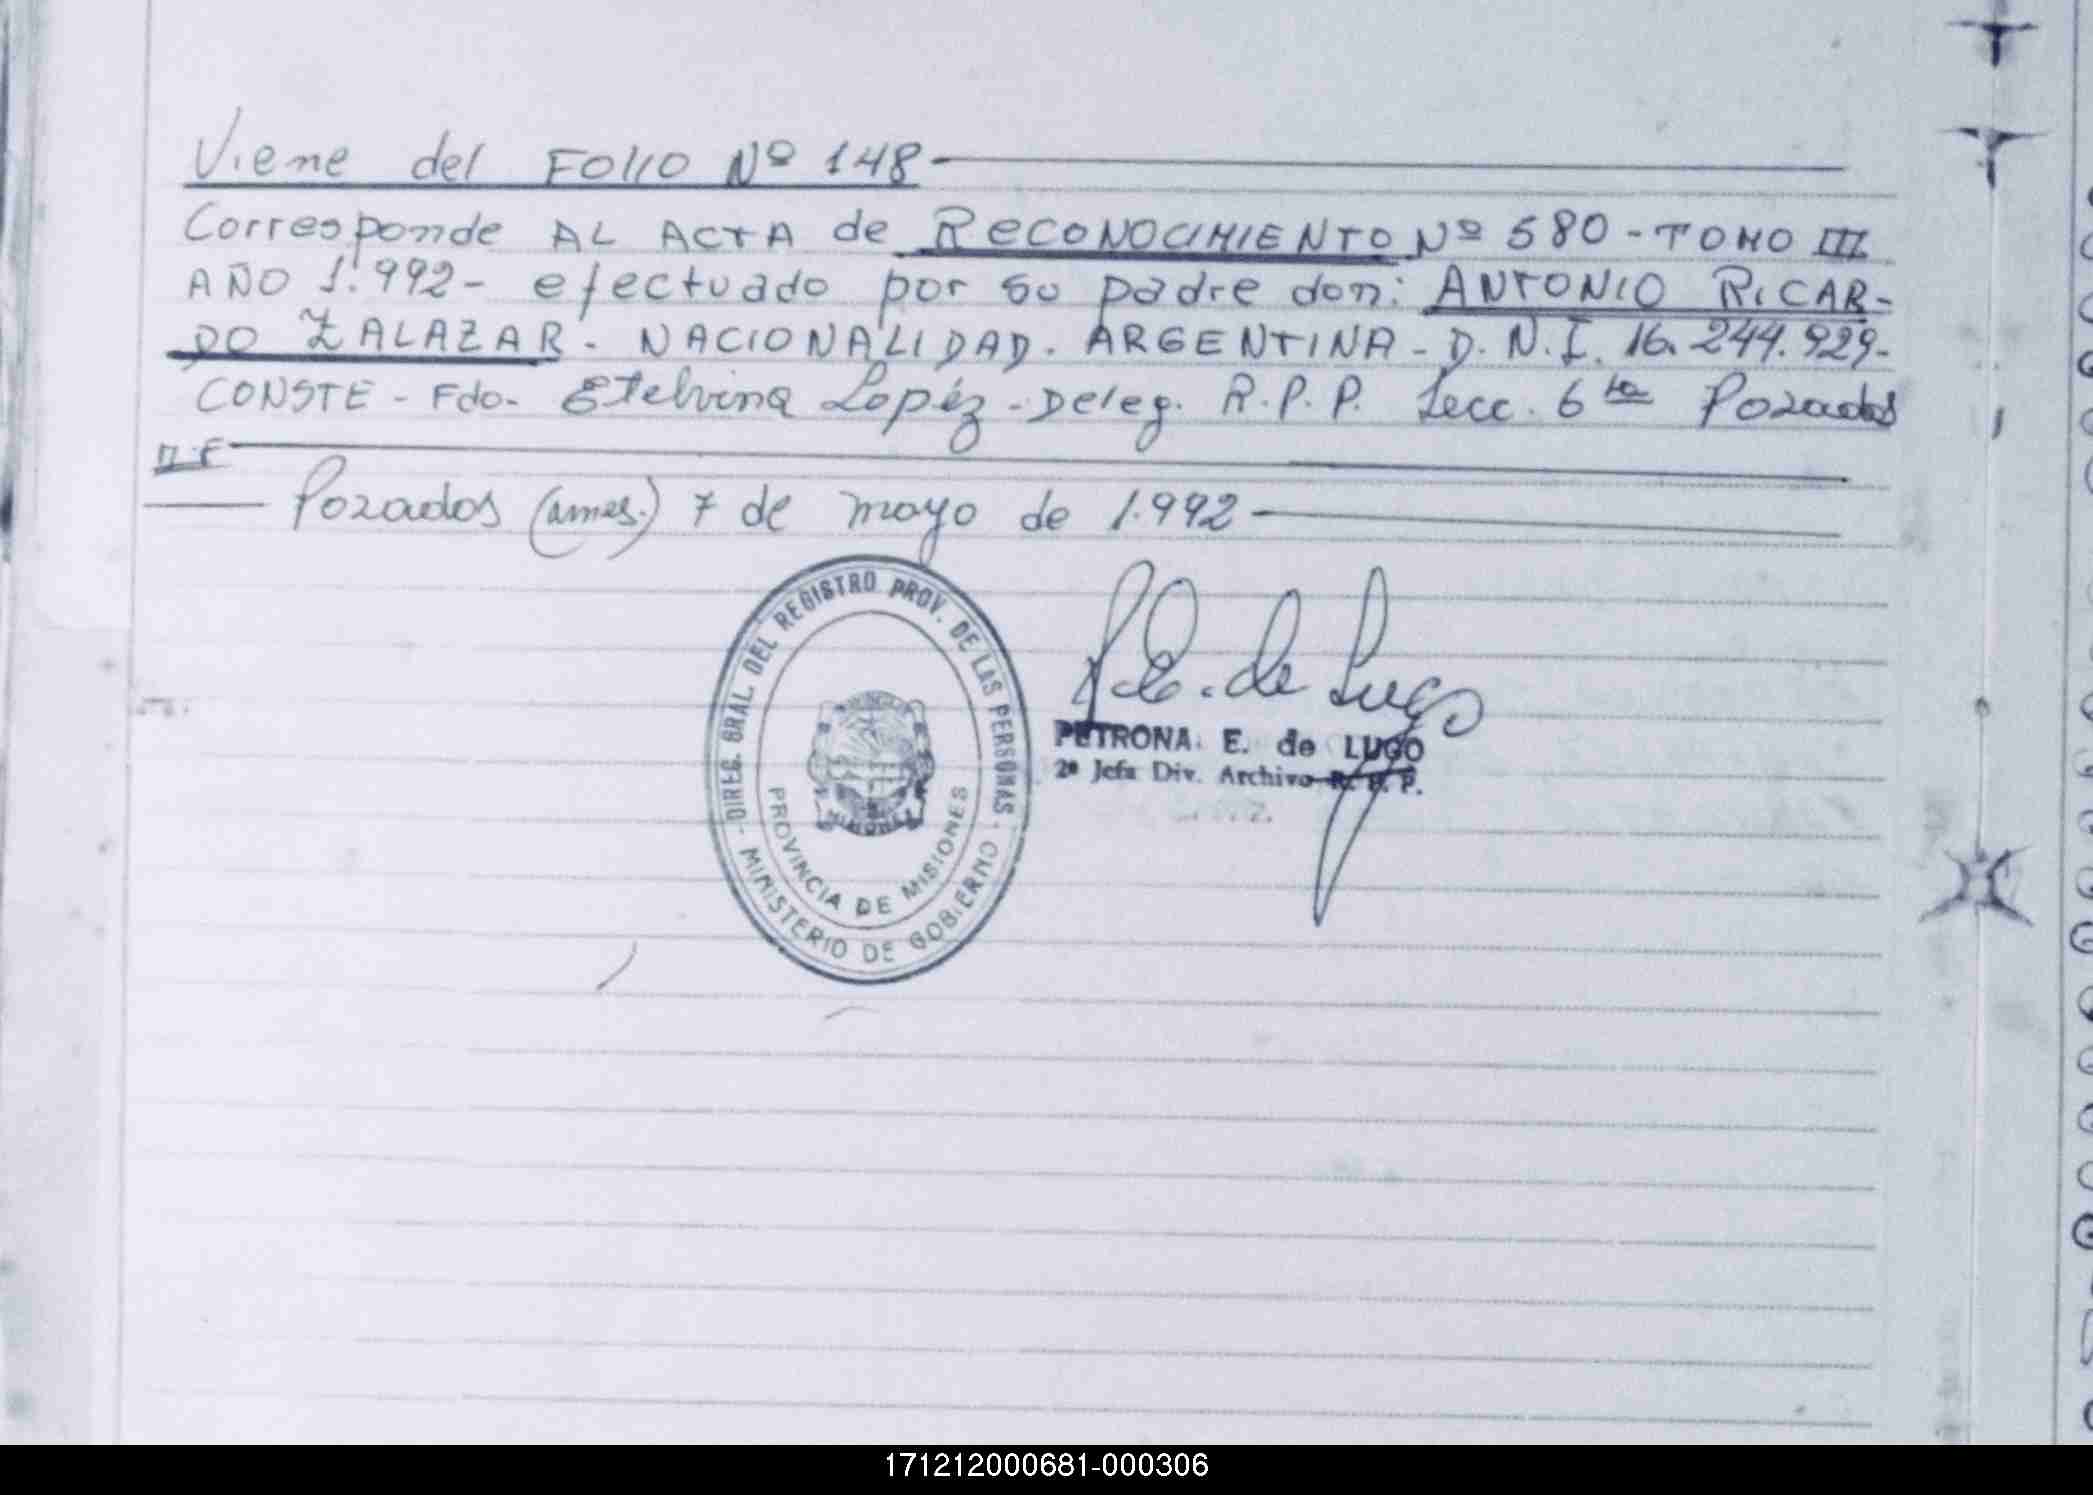 Viene del FOLIO Nº 148
Corresponde AL ACTA de RECONOCIMIENTO Nº 580 - TOMO III
AÑO 1.992 - efectuado por su padre don: ANTONIO RICAR-
DO ZALAZAR - NACIONALIDAD. ARGENTINA - D.N.I. 16.244.929-
CONSTE - Fdo. Etelvina Lopéz - Deleg. R.P.P. Secc. 6ta Pozadas
Pozadas (Mnes.) 7 de mayo de 1.992
DIREC. GRAL. DEL REGISTRO PROV. DE LAS PERSONAS
MINISTERIO DE GOBIERNO
PROVINCIA DE MISIONES
MISIONES
P. E. de Lugo
PETRONA E. de LUGO
2ª Jefa Div. Archivo R. P. P.
171212000681-000306